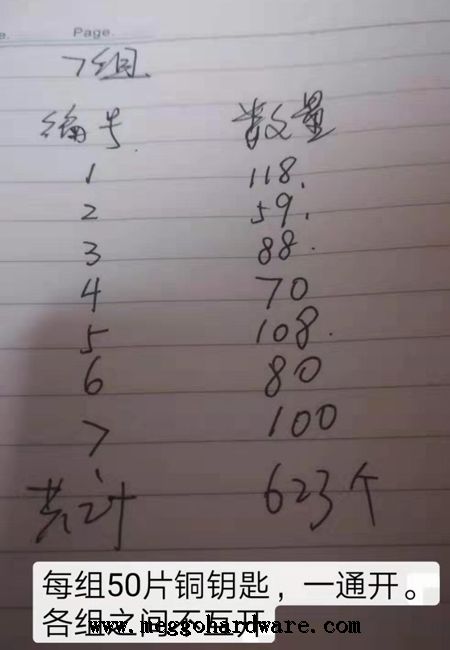 e. Page.
7组
编号 数量
1 118.
2 59.
3 88.
4 70
5 108.
6 80
7 100
共计 623个
每组50片铜钥匙，一通开。
各组之间不互开
www.meggohardware.com